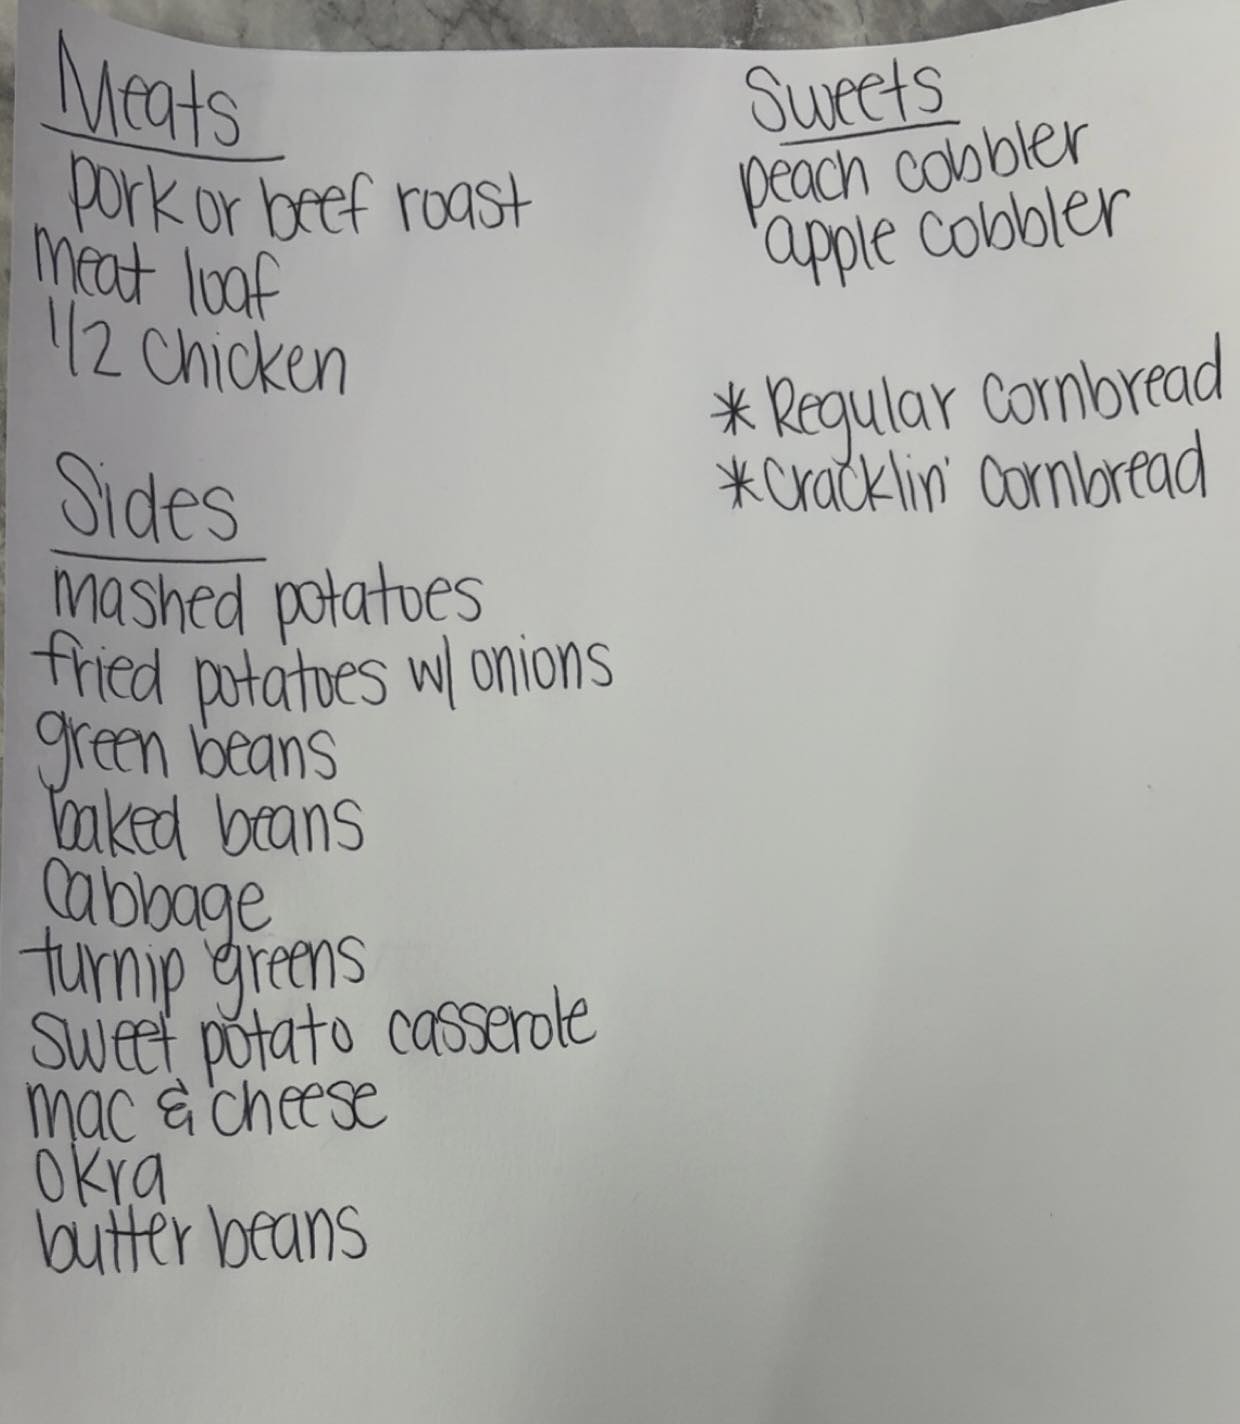 Meats
pork or beef roast
meat loaf
1/2 chicken
Sides
mashed potatoes
fried potatoes w/ onions
green beans
baked beans
cabbage
turnip greens
sweet potato casserole
mac & cheese
okra
butter beans
Sweets
peach cobbler
apple cobbler
* Regular cornbread
* Cracklin' cornbread